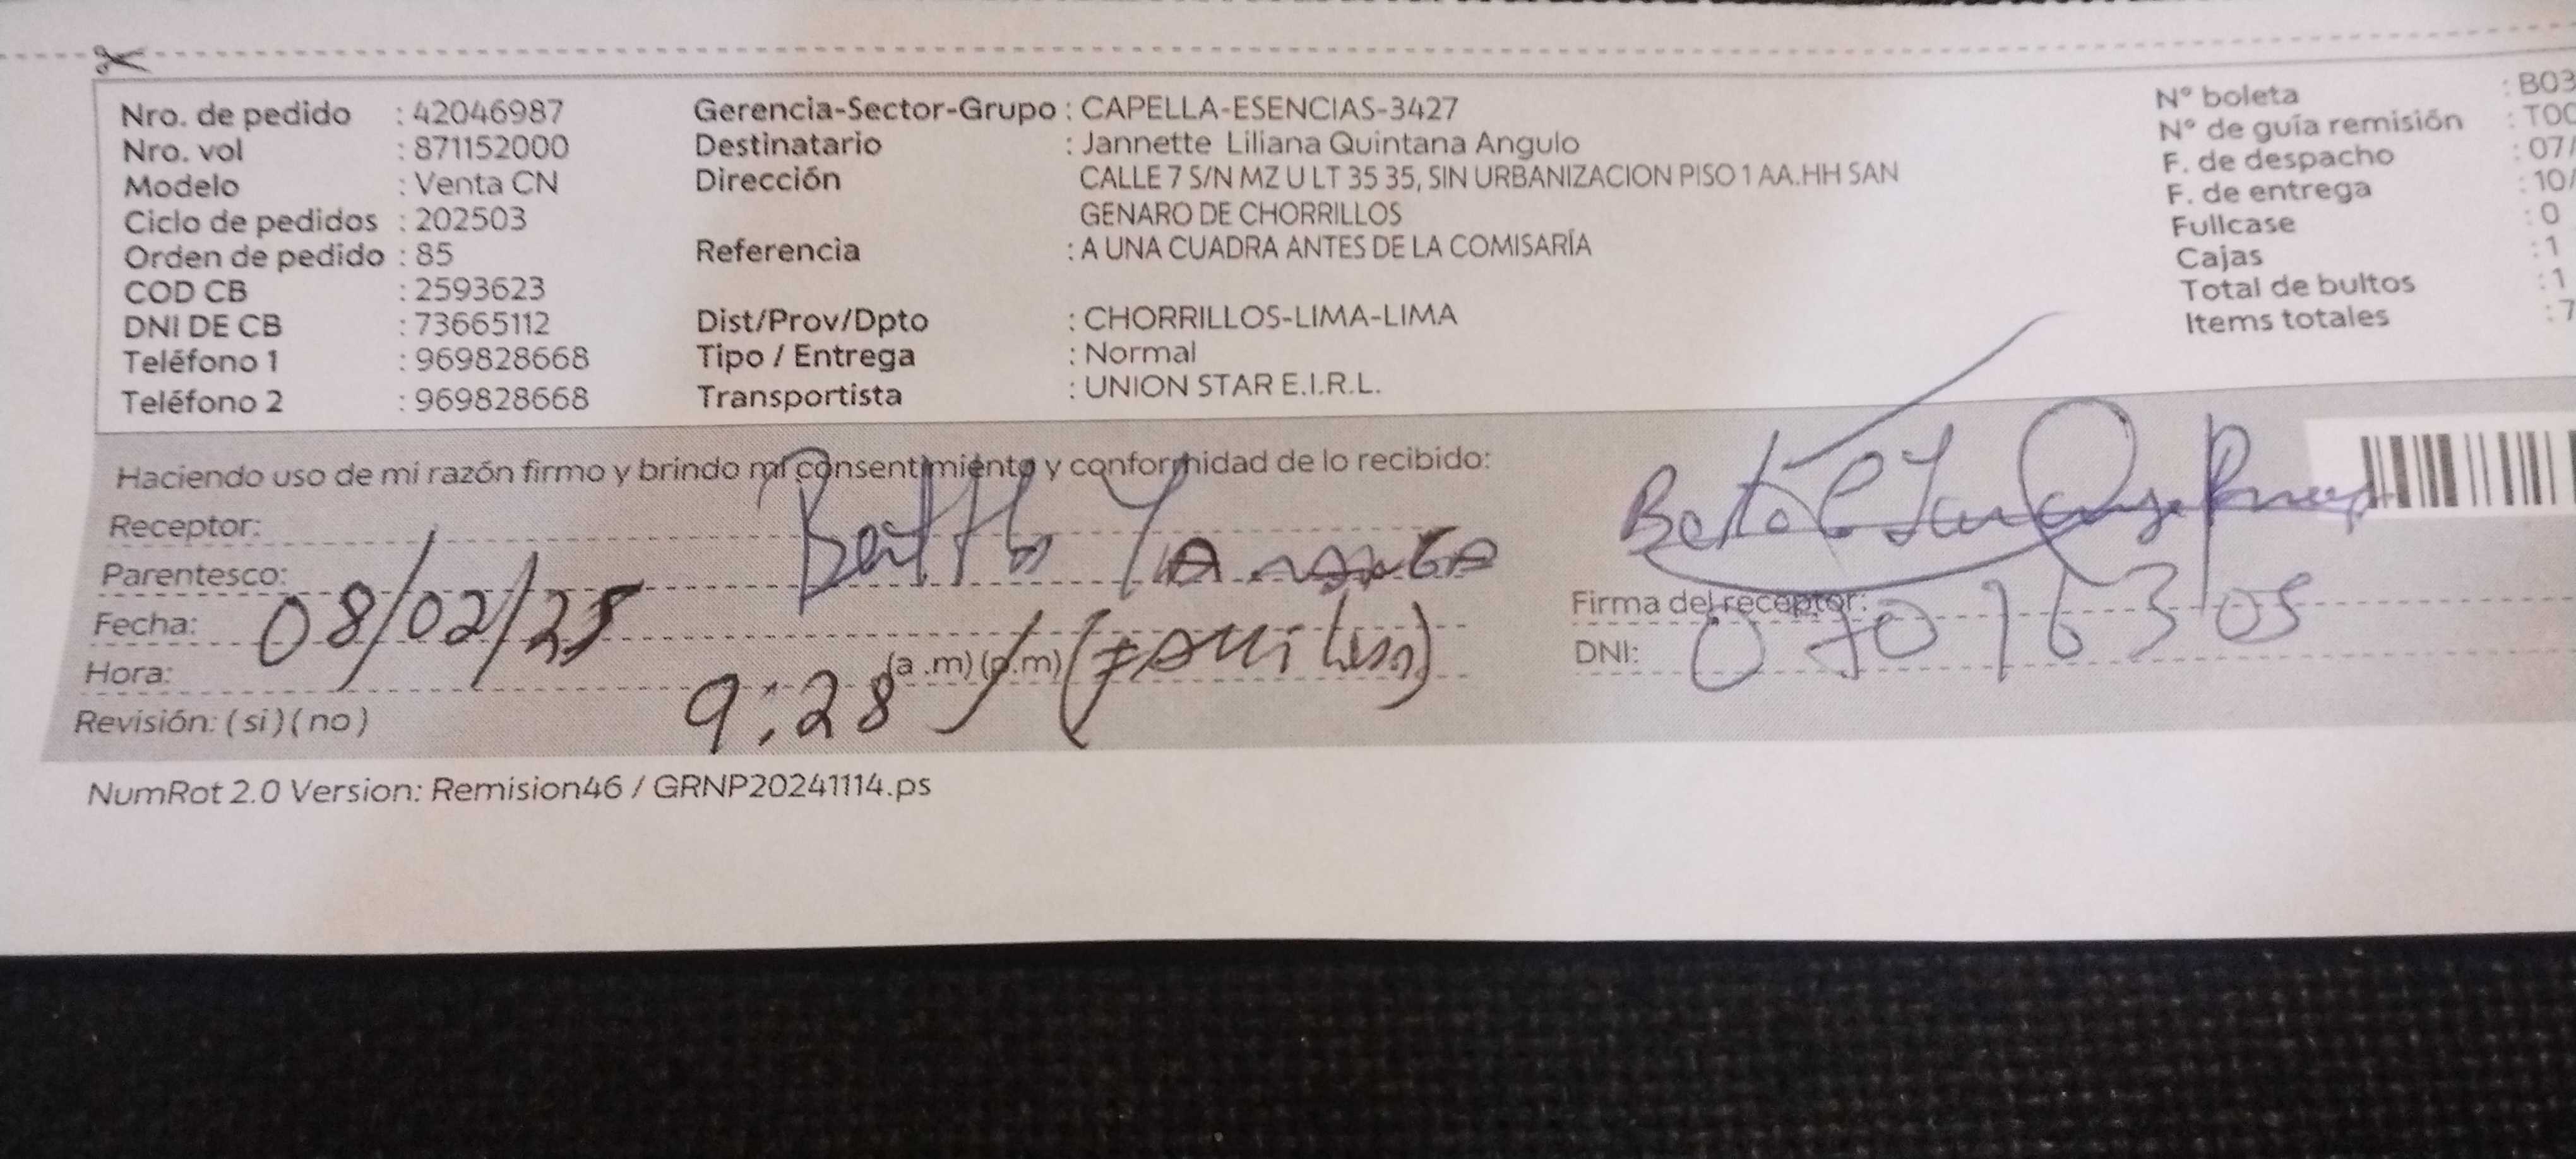 Nro. de pedido : 42046987
Nro. vol : 871152000
Modelo : Venta CN
Ciclo de pedidos : 202503
Orden de pedido : 85
COD CB : 2593623
DNI DE CB : 73665112
Teléfono 1 : 969828668
Teléfono 2 : 969828668
Gerencia-Sector-Grupo : CAPELLA-ESENCIAS-3427
Destinatario : Jannette Liliana Quintana Angulo
Dirección CALLE 7 S/N MZ U LT 35 35, SIN URBANIZACION PISO 1 AA.HH SAN
GENARO DE CHORRILLOS
Referencia : A UNA CUADRA ANTES DE LA COMISARÍA
Dist/Prov/Dpto : CHORRILLOS-LIMA-LIMA
Tipo / Entrega : Normal
Transportista : UNION STAR E.I.R.L.
N° boleta : B03
N° de guía remisión : T00
F. de despacho : 07/
F. de entrega : 10/
Fullcase : 0
Cajas : 1
Total de bultos : 1
Items totales : 7
Haciendo uso de mi razón firmo y brindo mi consentimiento y conformidad de lo recibido:
Receptor:
Parentesco:
Fecha: 08/02/25
Hora: 9:28 (a .m) (p.m)
Revisión: ( si ) ( no )
Firma del receptor:
DNI:
NumRot 2.0 Version: Remision46 / GRNP20241114.ps